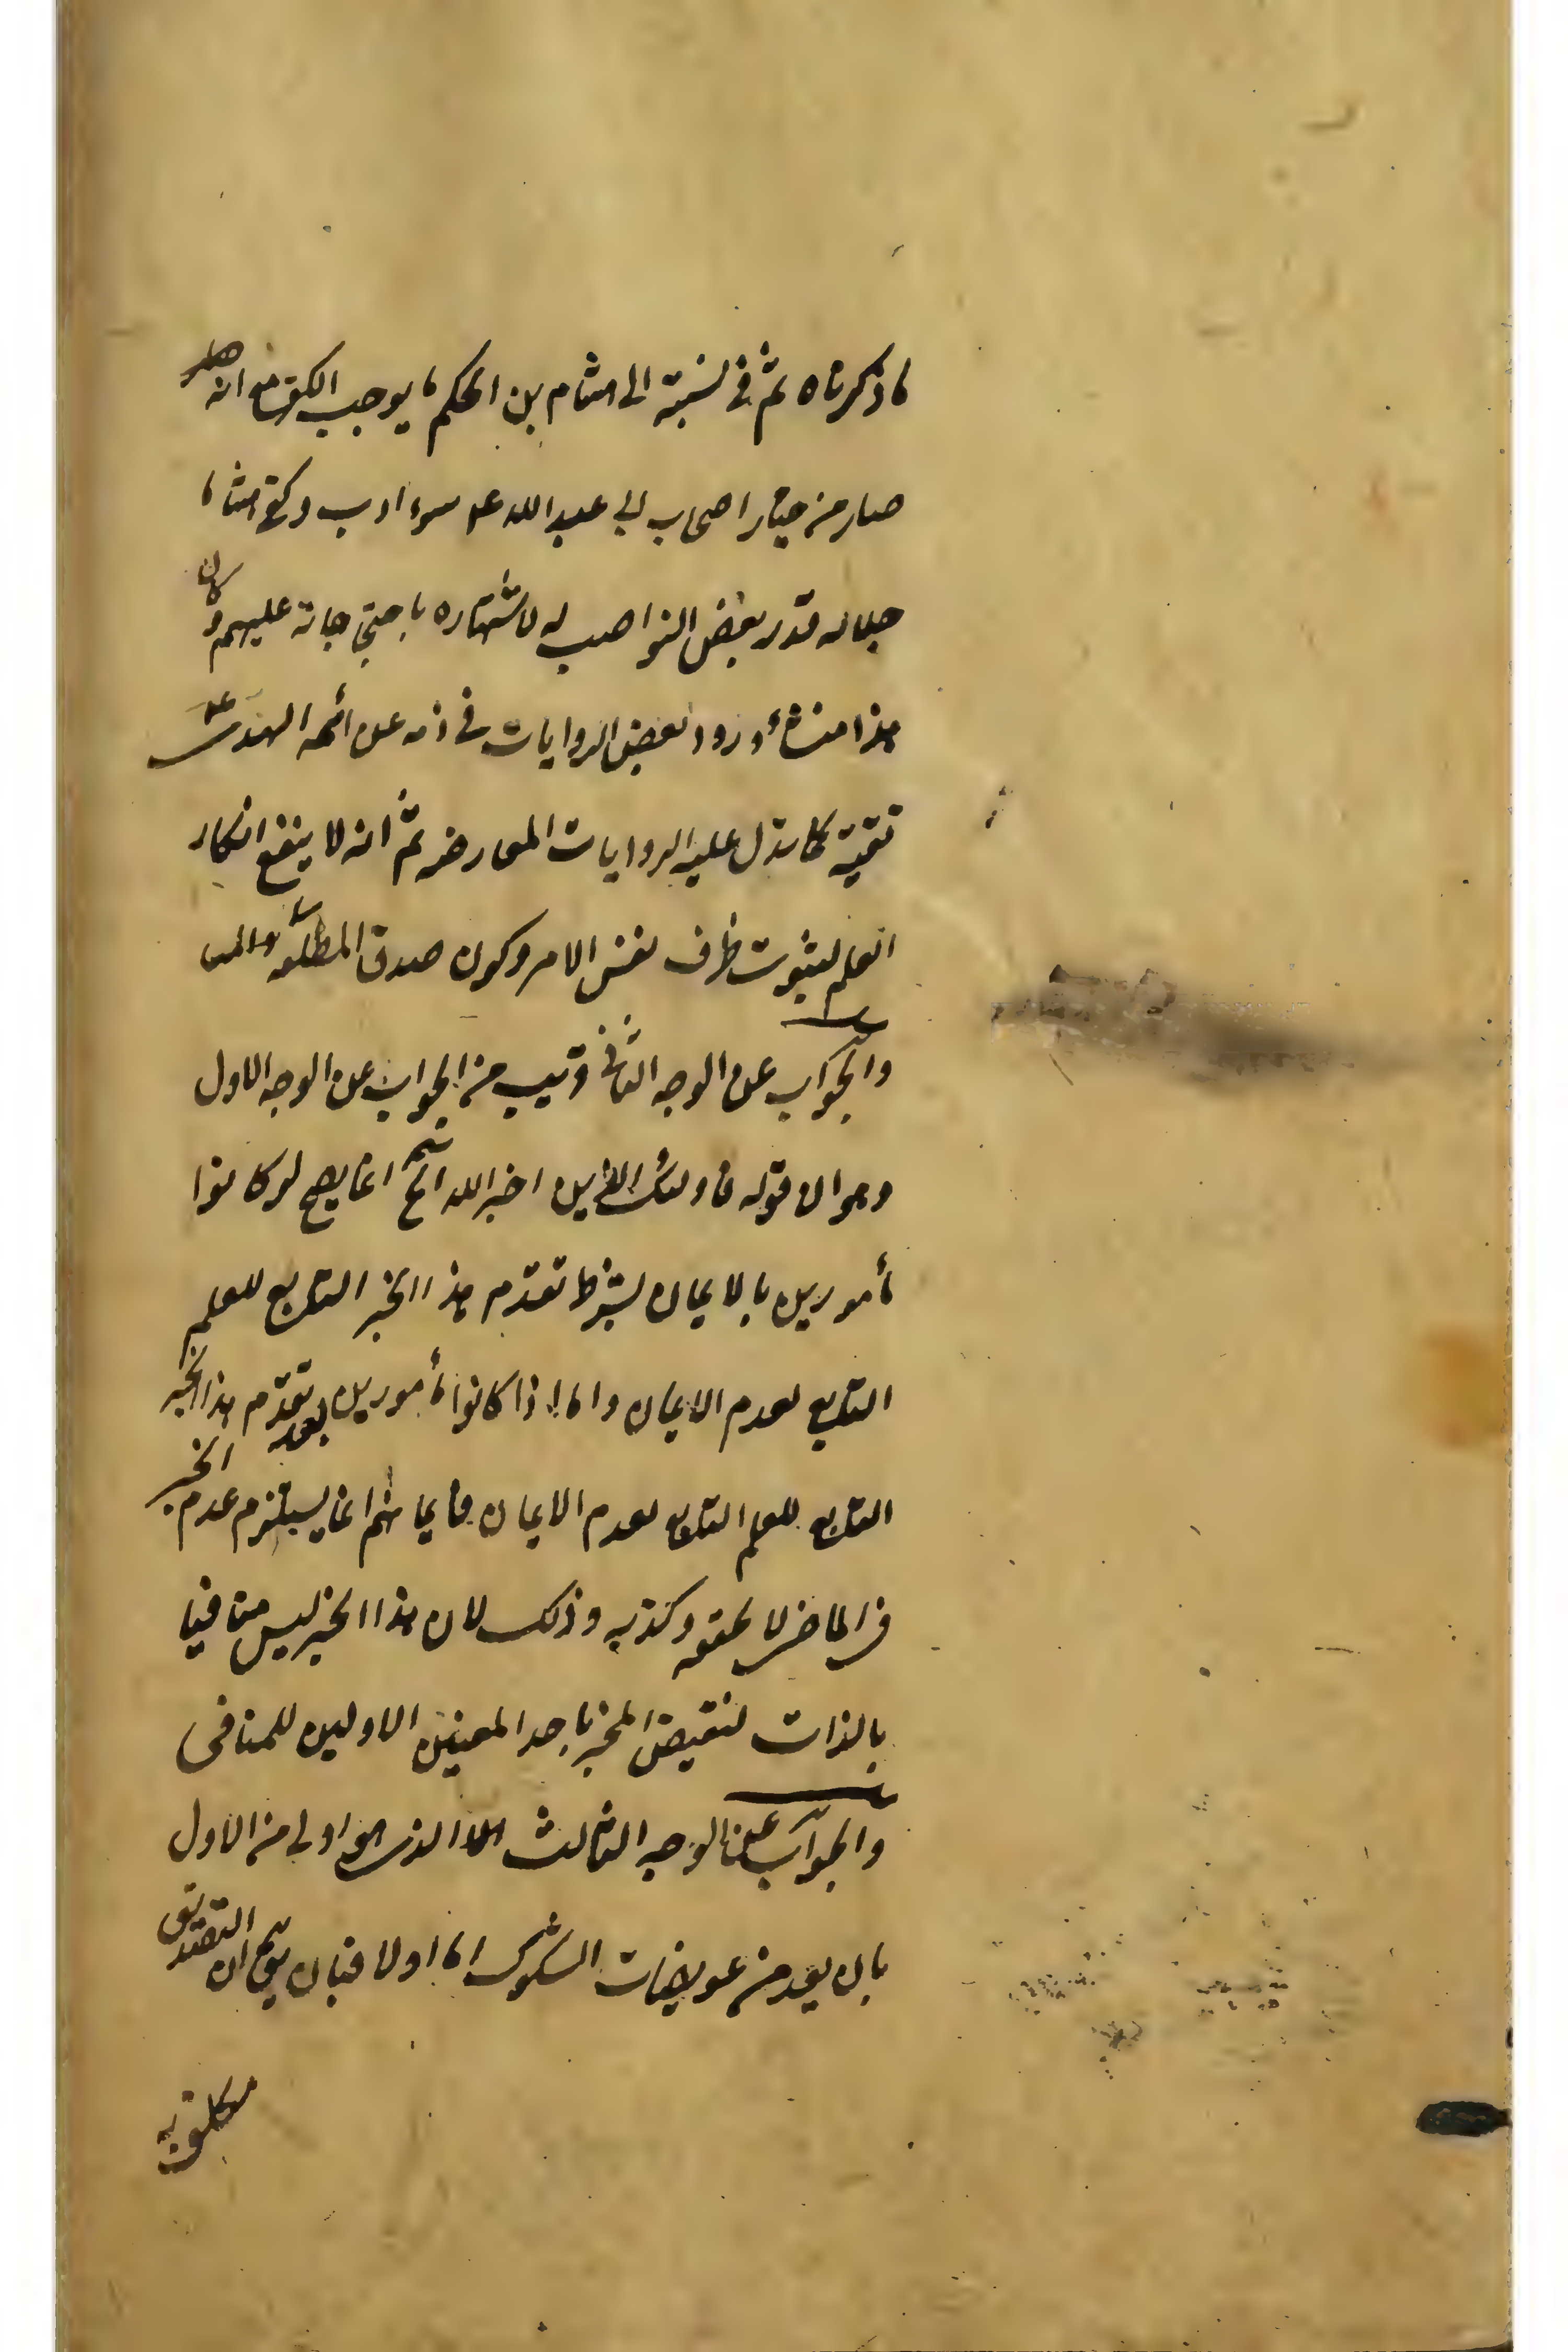 ما ذكرناه ثم في نسبته الى هشام بن الحكم ما يوجب الكفر مع انه
صار من خيار اصحاب ابي عبد الله سوء ادب وكفى هشاما
جلالة قدر بغض النواصب له لاشتهاره باحتجاجاته عليهم وكان
هذا منشأ ورود بعض الروايات في ذمه عن ائمة الهدى
تقية كما تدل عليه الروايات المعارضة ثم انه لا ينفع انكار
العلم لثبوت ظرف نفس الامر وكون صدق المطلقة
والجواب عن الوجه الثاني قريب من الجواب عن الوجه الاول
وهو ان قوله فاولئك الذين اخبر الله الخ انما يصح لو كانوا
مأمورين بالايمان بشرط تقدم هذا الخبر التابع للعلم
التابع لعدم الايمان واما اذا كانوا مأمورين بعد تقدم هذا الخبر
التابع للعلم التابع لعدم الايمان فايمانهم انما يستلزم عدم الخبر
في الماضي لا تحققه وكذبه وذلك لان هذا الخبر ليس منافيا
بالذات لنقيض المخبر باحد المعنيين الاولين للمنافى
والجواب عن الوجه الثالث الذي هو اولى من الاول
بان يعد من عويصات الشكوك اما اولا فبان يق ان التصديق